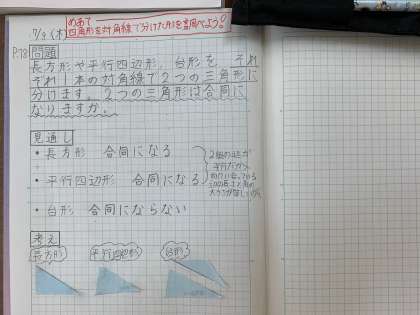 めあて
四角形を対角線で分けた形を調べよう!
7/9 (木)
P.78 問題
長方形や平行四辺形、台形を、それ
ぞれ1本の対角線で2つの三角形に
分けます。2つの三角形は合同に
なりますか。
見通し
・長方形 合同になる
・平行四辺形 合同になる
・台形 合同にならない
2組の辺が
平行だから
考え
長方形 平行四辺形 台形